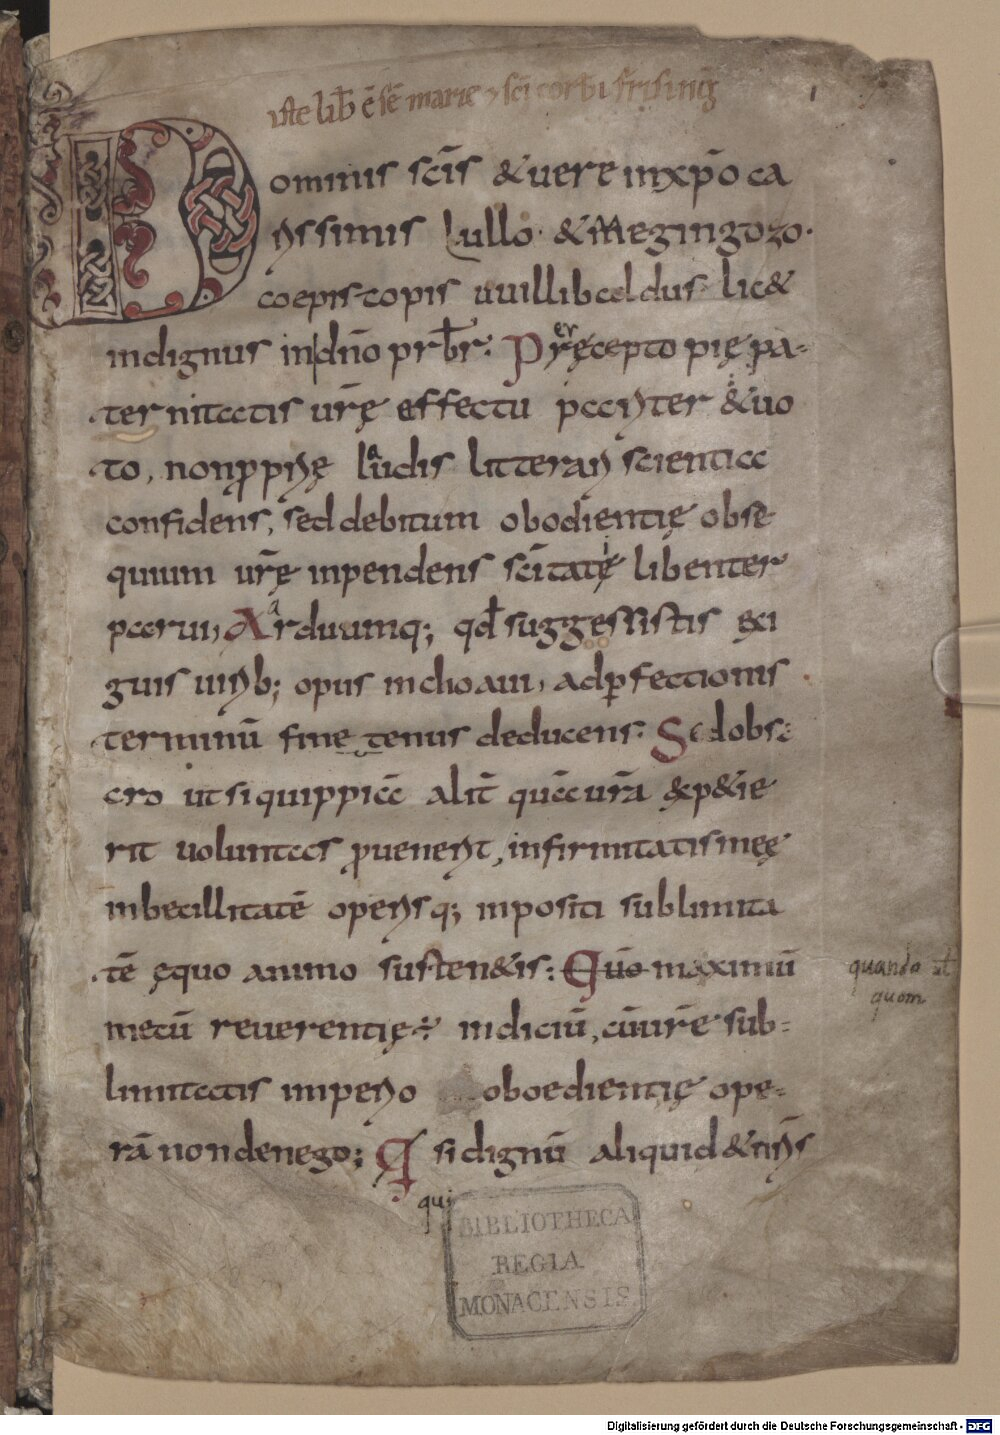 iste lib̄ ē sc̄e marie ⁊ sc̄i corb̄i frising̃
1
Dominus sc̄is & uere in xp̄o ca
rissimis Lullo · & Megingozo ·
coepiscopis uuillibaldus lic&
indignus in dn̄o prb̄r : Pręcepto pię pa-
er
ternitatis ur̄ę effectu pariter & uo
to, non ꝓprię laudis litterarū scientia
confidens, sed debitum obodientię obse
quium ur̄ę inpendens sc̄itatię libenter
parui, Arduumq; qd̄ suggessistis exi
guis uirib; opus inchoaui, ad ꝑfectionis
terminū fine tenus deducens : Sed obse
cro ut si quippiā alit̄ quā ur̄a expetie
rit uoluntas ꝓuenerit, infirmitatis meę
inbecillitatē operisq; inpositi sublimita
tē ęquo animo susten&is : Quō maximū
quando ut̄
quom
mecū reuerentię ÷ indiciū, cū ur̄ę sub-
limitatis imperio oboedientię ope-
rā non denego ; Q si dignū aliquid & nr̄is
qui
BIBLIOTHECA
REGIA
MONACENSIS
Digitalisierung gefördert durch die Deutsche Forschungsgemeinschaft - DFG